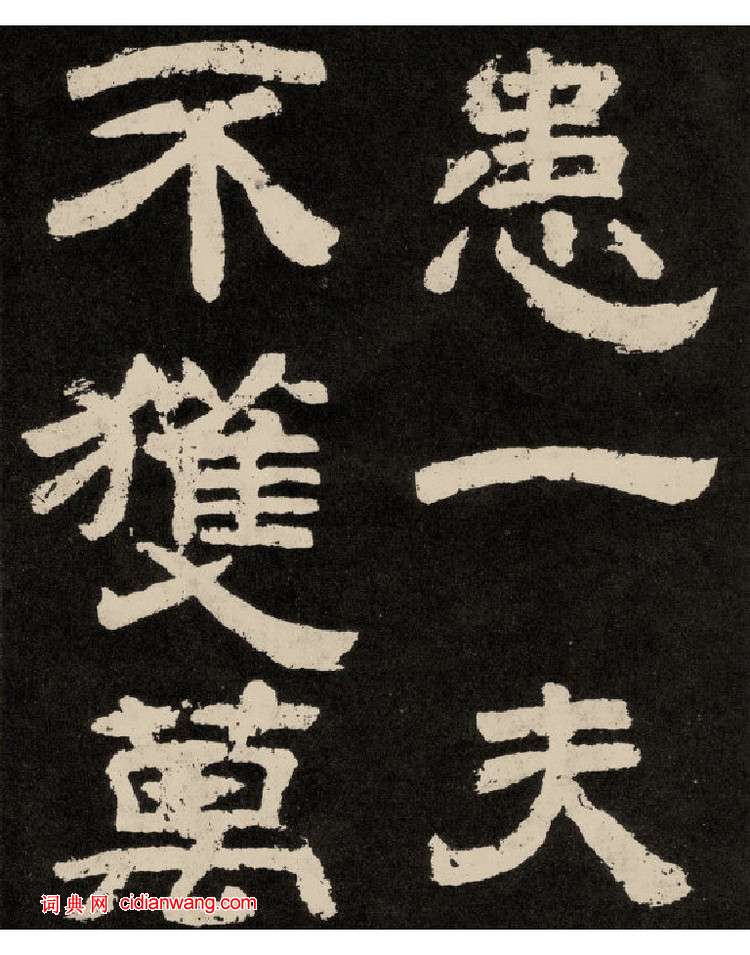 患一夫
不獲萬
词典网 cidianwang.com